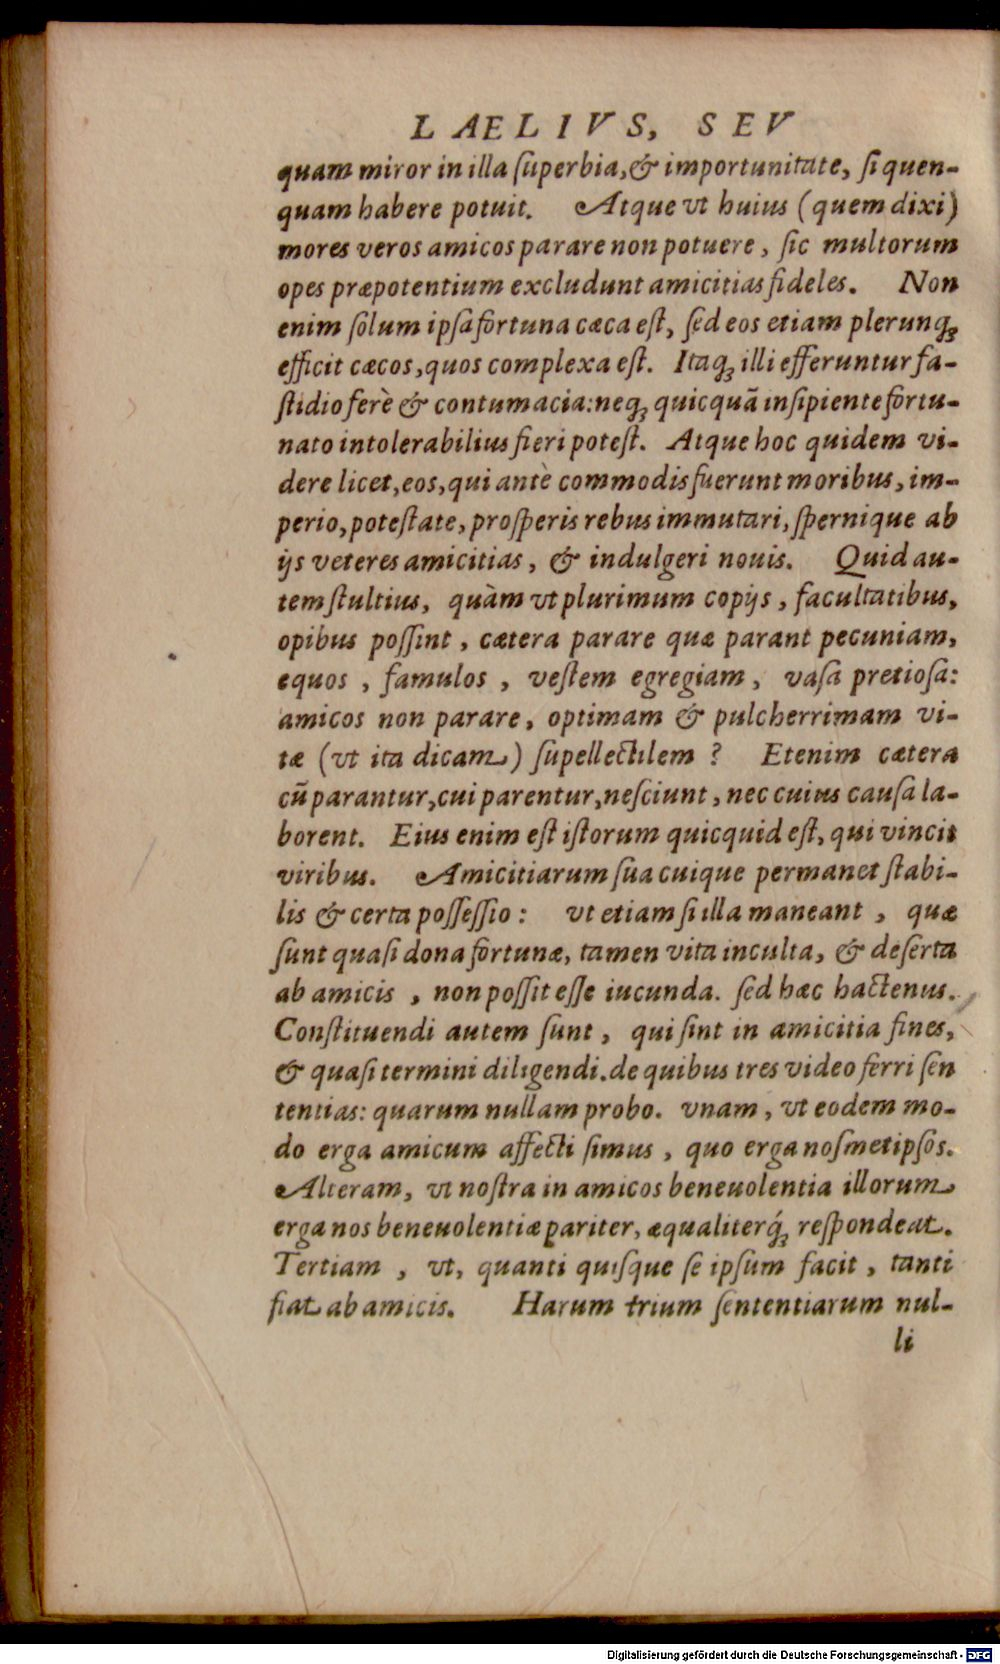 LAELIVS, SEV
quam miror in illa ſuperbia, & importunitate, ſi quen-
quam habere potuit. Atque vt huius (quem dixi)
mores veros amicos parare non potuere, ſic multorum
opes præpotentium excludunt amicitias fideles. Non
enim ſolum ipſa fortuna cæca eſt, ſed eos etiam plerunq́;
efficit cæcos, quos complexa eſt. Itaq; illi efferuntur fa-
ſtidio ferè & contumacia: neq; quicquã inſipiente fortu-
nato intolerabilius fieri poteſt. Atque hoc quidem vi-
dere licet, eos, qui antè commodis fuerunt moribus, im-
perio, poteſtate, proſperis rebus immutari, ſpernique ab
ijs veteres amicitias, & indulgeri nouis. Quid au-
tem ſtultius, quàm vt plurimum copijs, facultatibus,
opibus poſſint, cætera parare quæ parant pecuniam,
equos, famulos, veſtem egregiam, vaſa pretioſa:
amicos non parare, optimam & pulcherrimam vi-
tæ (vt ita dicam) ſupellectilem? Etenim cætera
cũ parantur, cui parentur, neſciunt, nec cuius cauſa la-
borent. Eius enim eſt iſtorum quicquid eſt, qui vincit
viribus. Amicitiarum ſua cuique permanet ſtabi-
lis & certa poſſeſſio: vt etiam ſi illa maneant, quæ
ſunt quaſi dona fortunæ, tamen vita inculta, & deſerta
ab amicis, non poſſit eſſe iucunda. ſed hæc hactenus.
Conſtituendi autem ſunt, qui ſint in amicitia fines,
& quaſi termini diligendi. de quibus tres video ferri ſen
tentias: quarum nullam probo. vnam, vt eodem mo-
do erga amicum affecti ſimus, quo erga noſmetipſos.
Alteram, vt noſtra in amicos beneuolentia illorum
erga nos beneuolentiæ pariter, æqualiterq́; reſpondeat.
Tertiam, vt, quanti quiſque ſe ipſum facit, tanti
fiat ab amicis. Harum trium ſententiarum nul-
li
Digitalisierung gefördert durch die Deutsche Forschungsgemeinschaft - DFG